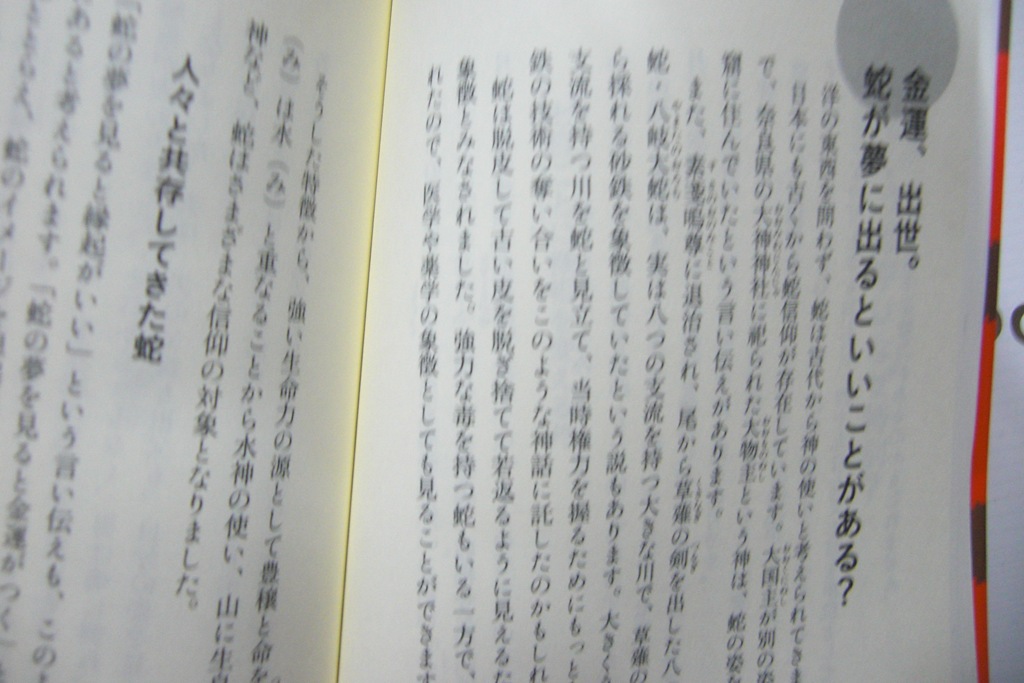 金運、出世。
蛇が夢に出るといいことがある?
洋の東西を問わず、蛇は古代から神の使いと考えられてきま
日本にも古くから蛇信仰が存在しています。大国主が別の姿
で、奈良県の大神神社に祀られた大物主という神は、蛇の姿
窟に住んでいたという言い伝えがあります。
また、素戔嗚尊に退治され、尾から草薙の剣を出した八
蛇・八岐大蛇は、実は八つの支流を持つ大きな川で、草薙の
ら採れる砂鉄を象徴していたという説もあります。大きく
支流を持つ川を蛇と見立て、当時権力を握るためにもっと
鉄の技術の奪い合いをこのような神話に託したのかもしれ
蛇は脱皮して古い皮を脱ぎ捨てて若返るように見えるた
象徴とみなされました。強力な毒を持つ蛇もいる一方で、
れたので、医学や薬学の象徴としても見ることができま
そうした特徴から、強い生命力の源として豊穣と命を
(み)は水(み)と重なることから水神の使い、山に生
神なら、蛇はさまざまな信仰の対象となりました。
人々と共存してきた蛇
「蛇の夢を見ると縁起がいい」という言い伝えも、この
あると考えられます。「蛇の夢を見ると金運がつく」